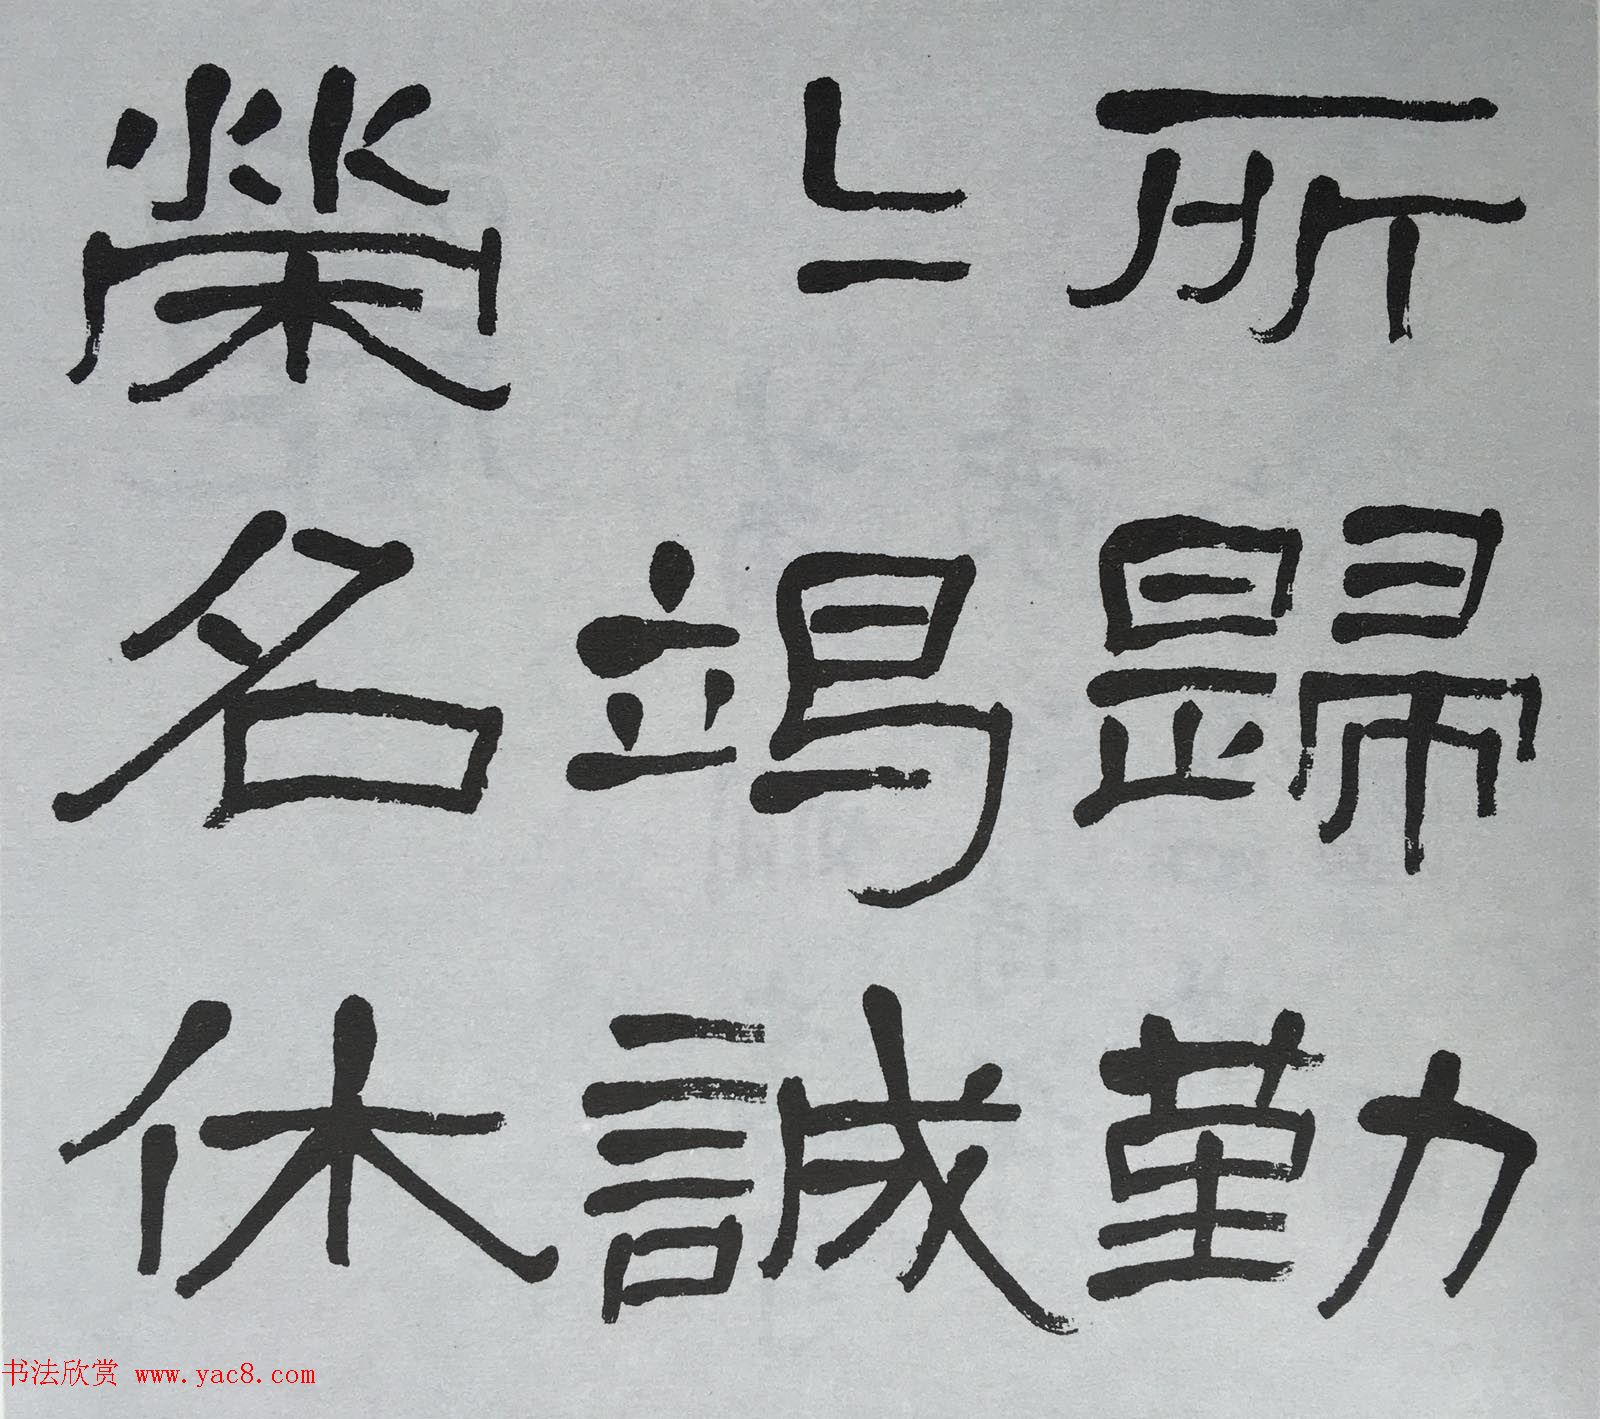 所歸勤
上竭誠
榮名休
书法欣赏 www.yac8.com